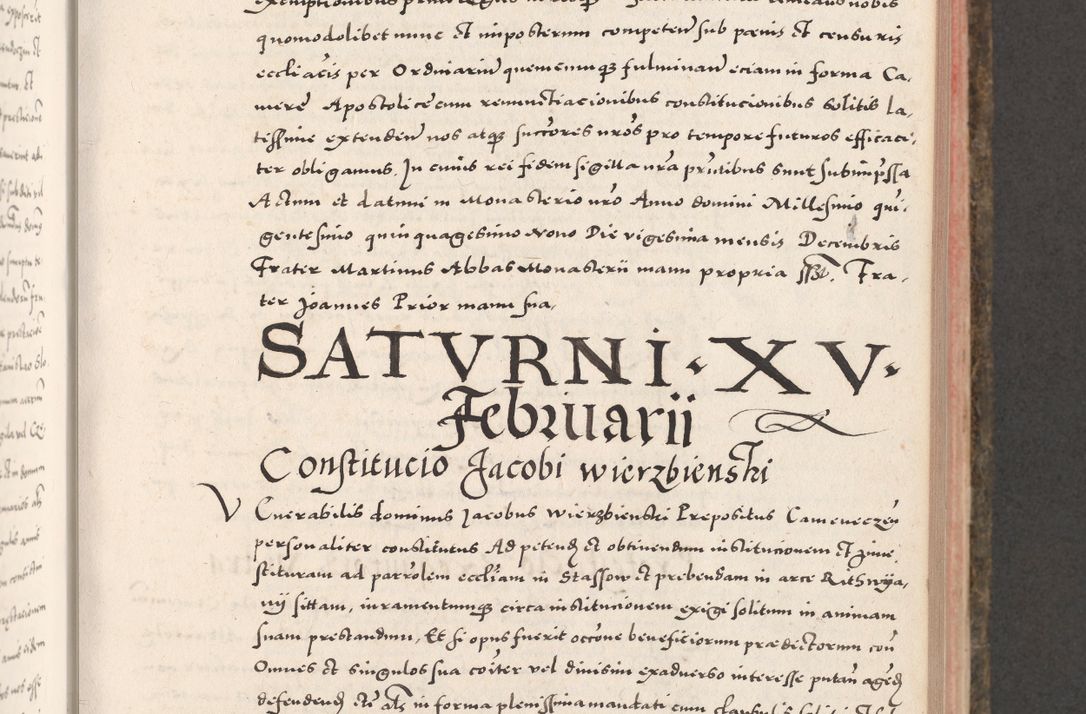 quomodolibet nunc et inposterum competen̄ sub pœnis et censuris
eccliacis per Ordinariū quemcumqȝ fulminan̄ eciam in forma Ca,
mere Apostolice cum renunctiacionibus constitucionibus solitis la,
tissime extenden̄ nos atqȝ succores nros pro tempore futuros efficaci,
ter obligamus. In cuius rei fidem sigilla nra pntibus sunt subimpssa
Actum et datum in Monasterio nro Anno domini Millesimo qui,
gentesimo quinquagesimo Nono Die vigesima mensis Decembris
Frater Martinus Abbas Monasterii manu propria sst. Fra,
ter Joannes Prior manu sua,
SATVRNI · XV ·
Februarii
Constitucio Jacobi wierzbienski
VEnerabilis dominus Jacobus Wierzbienski Prepositus Cameneczen̄
personaliter constitutus Ad petend̄ et obtinendum institucionem et inue
stituram ad parrolem eccliam in Stassow et prebendam in arce
sittam, iuramentumqȝ circa institucionem exigi solitum in animam
suam prestandum, Et si opus fuerit occōne beneficiorum prædictorum con
Omnes et singulos sua coiter vel diuisim exaduerso interesse putan̄ agend̄
defendend̄ in forma plenissima mandati cum clausulis